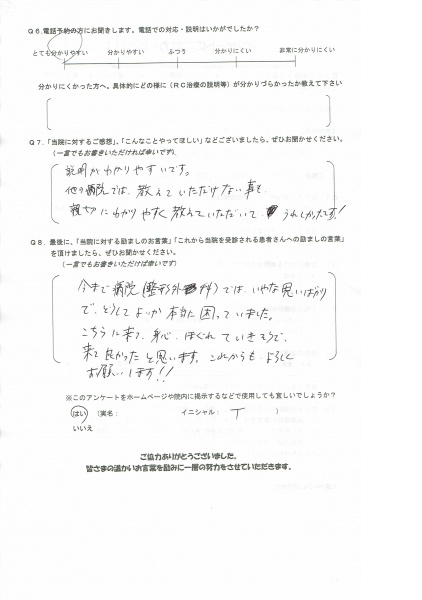 Q6.電話予約の方にお聞きします。電話での対応・説明はいかがでしたか?
とても分かりやすい 分かりやすい ふつう 分かりにくい 非常に分かりにくい
分かりにくかった方へ。具体的にどの様に(RC治療の説明等)が分かりづらかったか教えて下さい
Q7.「当院に対するご感想」、「こんなことやってほしい」などございましたら、ぜひお聞かせください。
(一言でもお書きいただければ幸いです)
説明がわかりやすいです。
他の病院では、教えていただけない事を
親切にわかりやすく教えていただいて、うれしかったです!
Q8.最後に、「当院に対する励ましのお言葉」「これから当院を受診される患者さんへの励ましの言葉」
を頂けましたら、ぜひお聞かせください。
(一言でもお書きいただけば幸いです)
今まで病院(整形外科)では、いやな思いばかり
で、どうしてよいか本当に困っていました。
こちらに来て、身心、ほぐれていきそうで、
来て良かったと思います。これからもよろしく
お願いします!!
※このアンケートをホームページや院内に掲示するなどで使用しても宜しいでしょうか?
はい (実名: イニシャル: T )
いいえ
ご協力ありがとうございました。
皆さまの温かいお言葉を励みに一層の努力をさせていただきます。